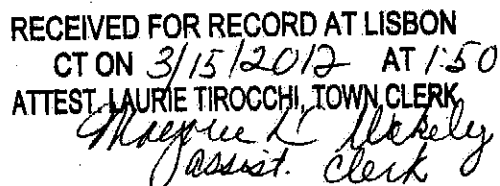 RECEIVED FOR RECORD AT LISBON
CT ON 3/15/2012 AT 1:50
ATTEST. LAURIE TIROCCHI, TOWN CLERK
assist. Clerk